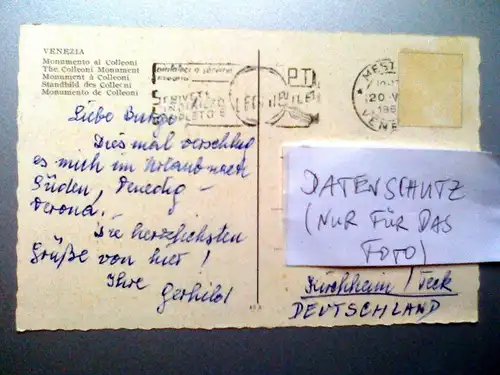 VENEZIA
Monumento al Colleoni
The Colleoni Monument
Monument à Colleoni
Standbild des Colleoni
Monumento de Colleoni
P.T.
MEST
20-V
196
VENE
Liebe
Diesmal verschlug
es mich im Urlaub nach
Süden, Venedig –
Verona.
Die herzlichsten
Grüße von hier!
Ihre
Gerhild
DATENSCHUTZ
(NUR FÜR DAS
FOTO)
Kirchheim / Teck
DEUTSCHLAND